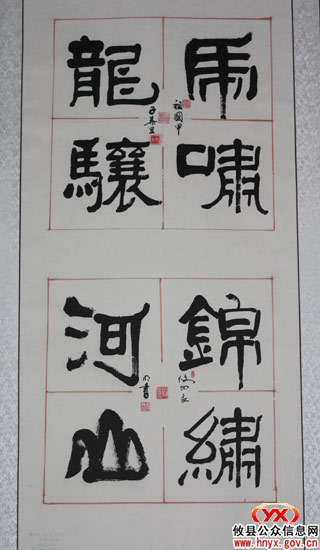 虎嘯
龍驤
祖國甲
錦繡
河山
書
YX
攸县公众信息网
www.hnyx.gov.cn